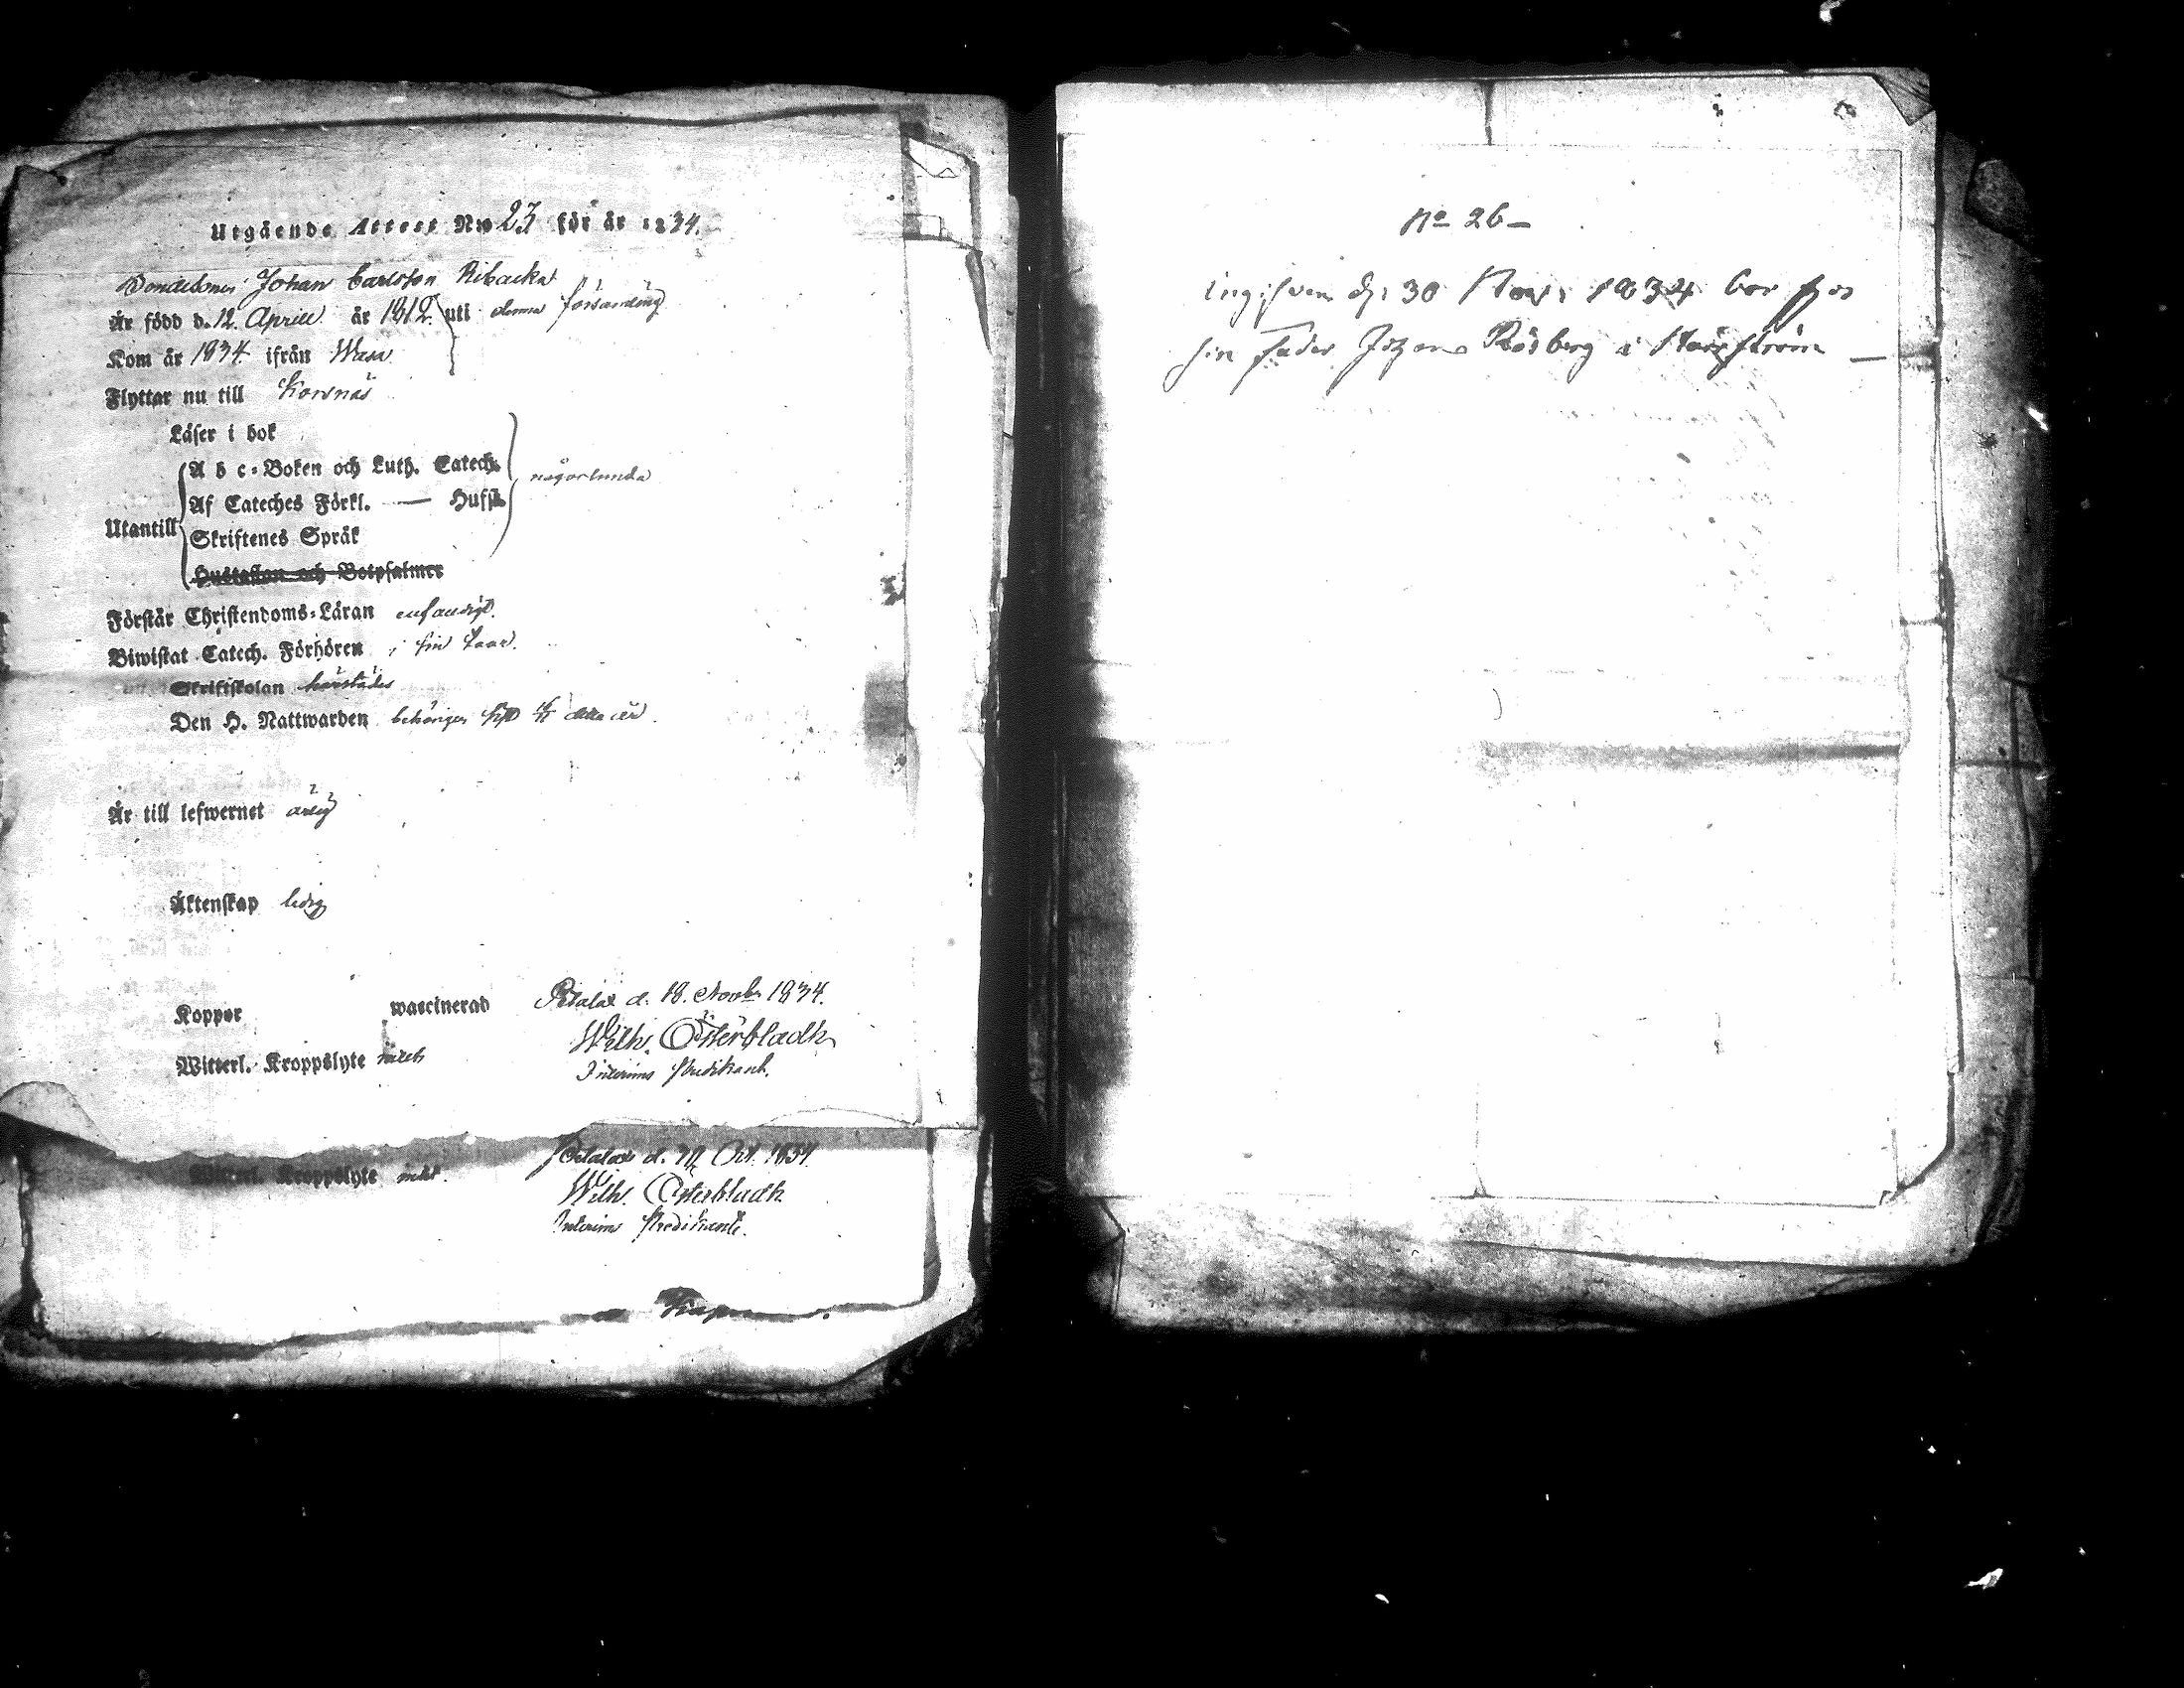 Utgående Attest N:o 23 för år 1834.
Bondesonen Johan Carlsson Ribacka
Är född d. 12 Aprill år 1812 uti denna församling
Kom år 1834 ifrån Wasa
Flyttar nu till Korsnäs
Läser i bok
A b c-Boken och Luth. Catech.
någorlunda
Af Cateches Förkl. — Hust.
Utantill
Skriftenes Språk
Hustaflan och Botpsalmer
Förstår Christendoms-Läran enfaldigt.
Biwistat Catech. Förhören i sin
Skriftskolan härstädes
Den H. Nattwarden behörigen sist detta år.
Är till lefwernet ärlig
Äktenskap ledig
Koppor waccinerad Petalax d. 18. Novbr 1834.
Wilh. Österbladh
Witterl. Kroppslyte intet
Interims Predikant.
Petalax d. Oct. 1834.
Witterl. Kroppslyte intet.
Wilh. Österbladh
Interims Predikant.
No 26 –
Ingifven d. 30 Nov. 1834 bor hos
sin fader Johan Rösberg i —